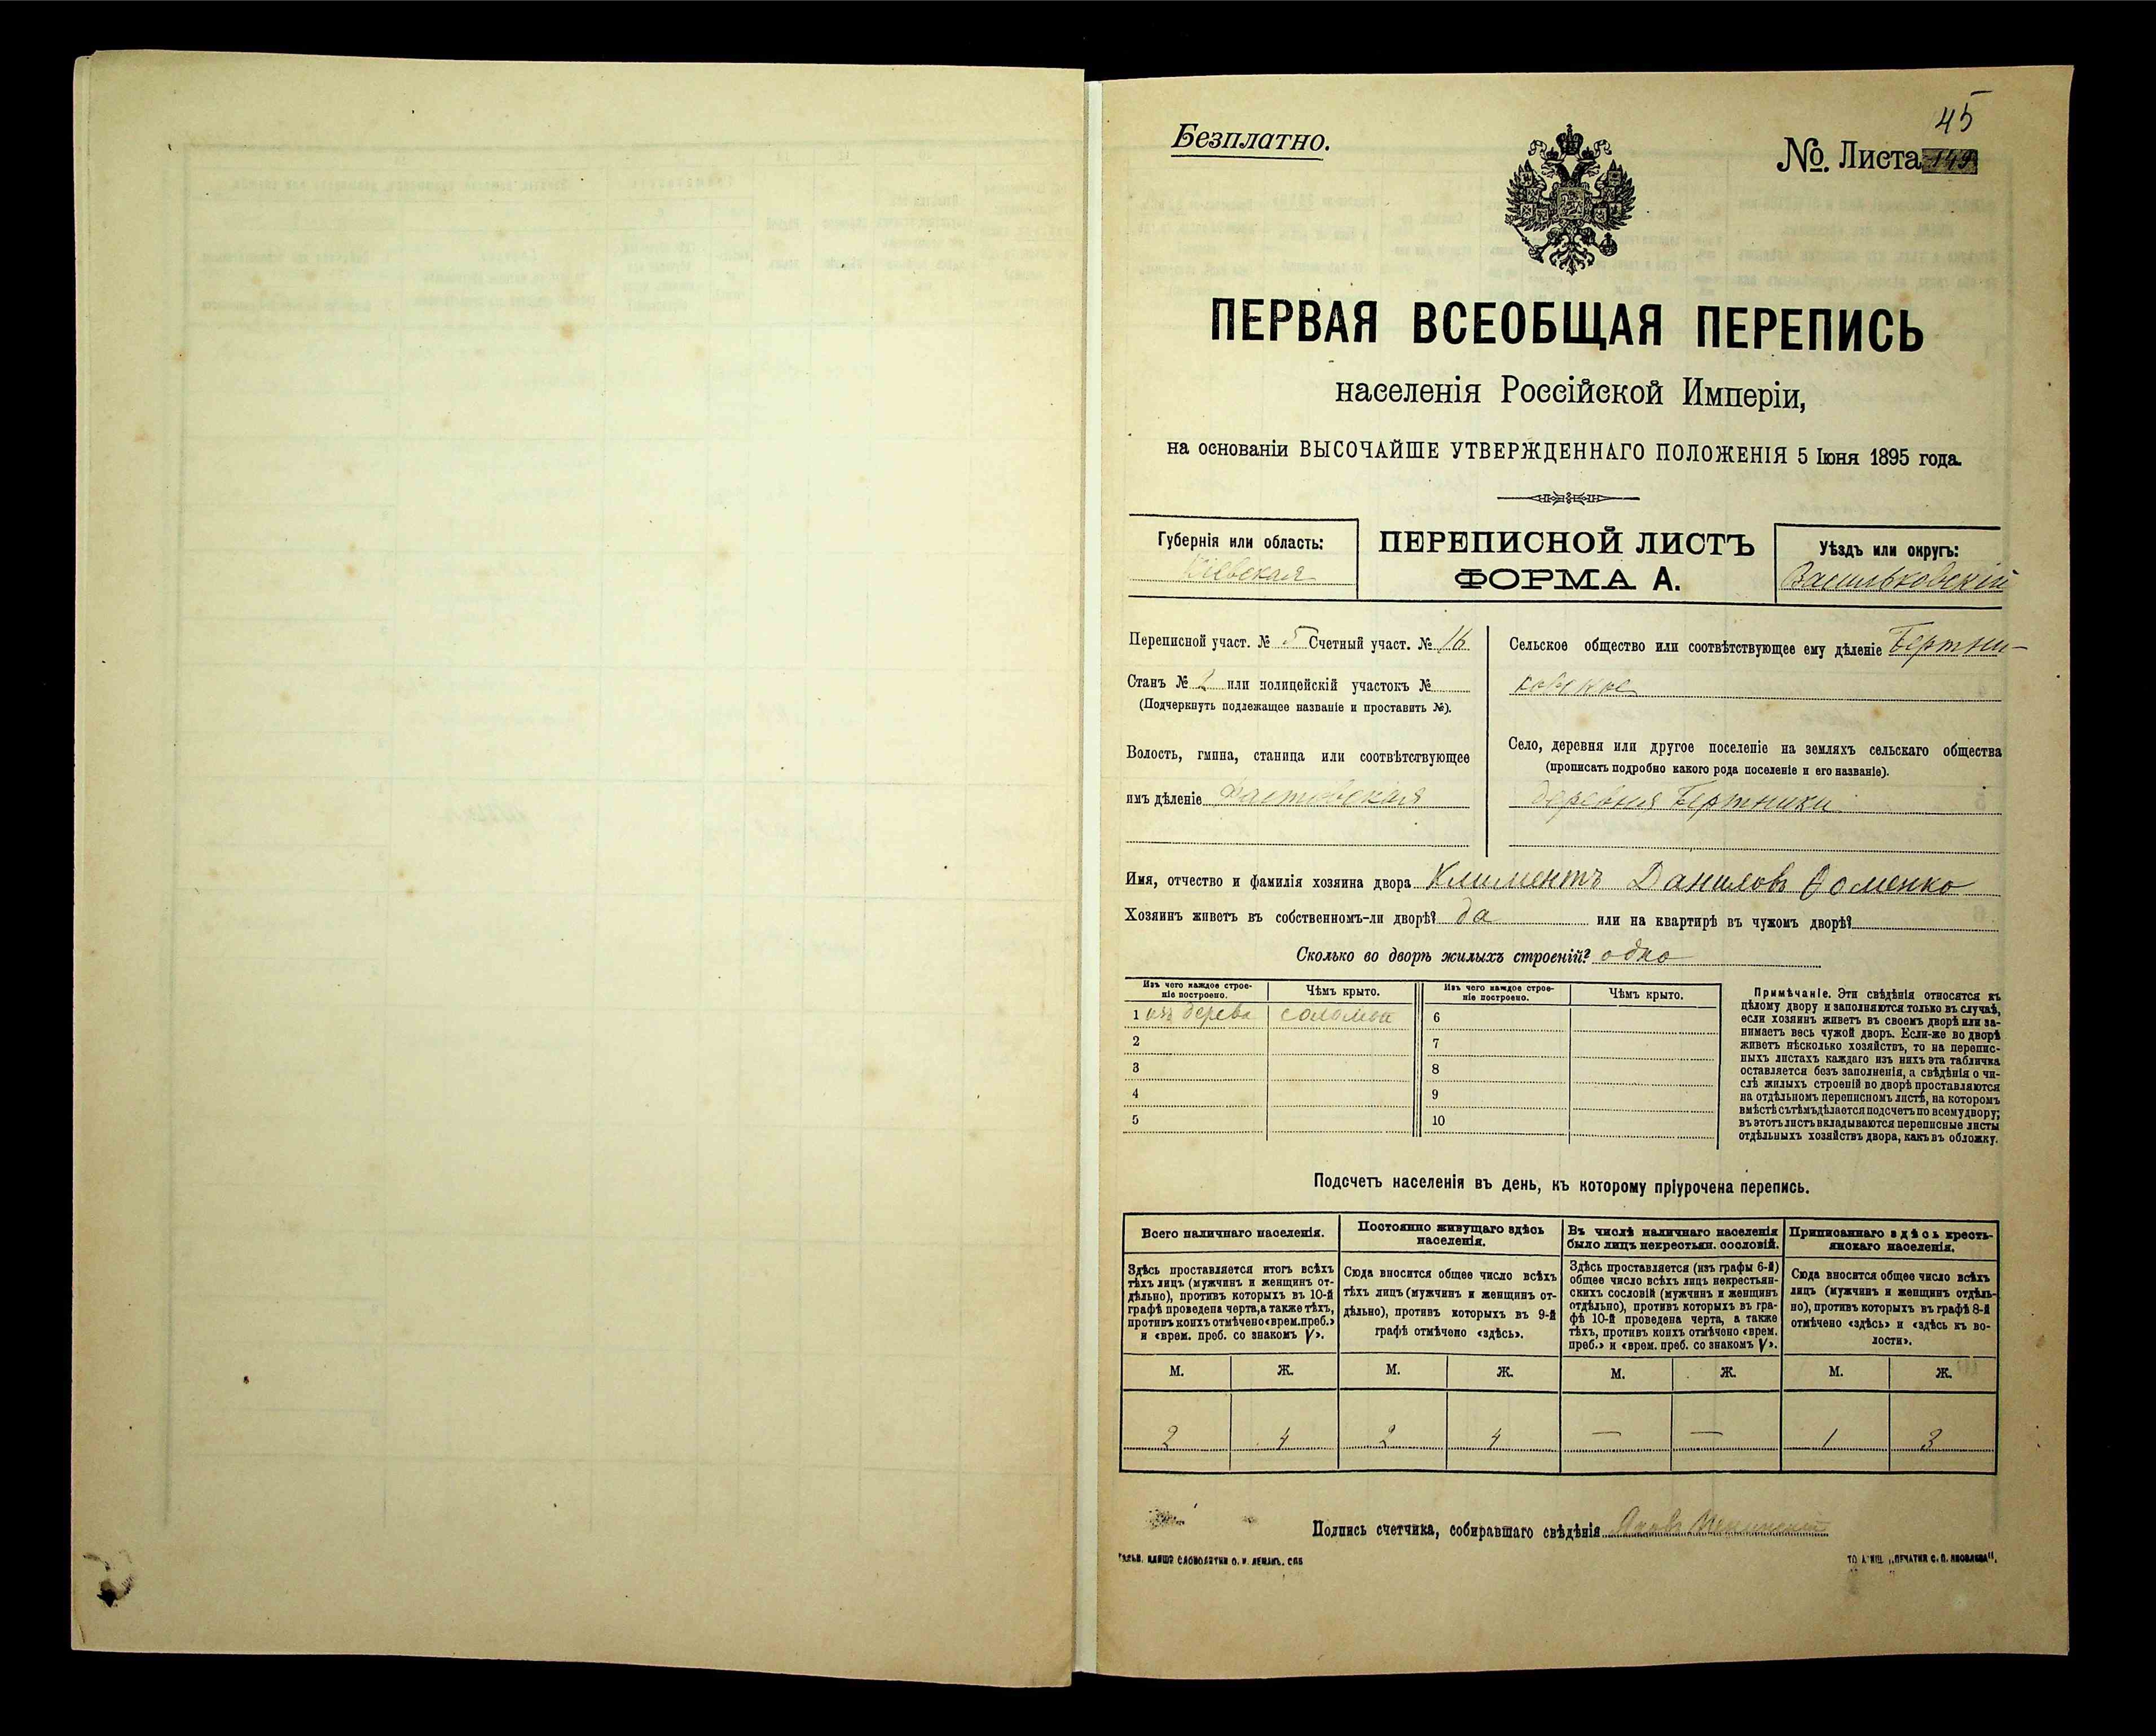 45
Безплатно.
№. Листа 149
ПЕРВАЯ ВСЕОБЩАЯ ПЕРЕПИСЬ
населенія Россійской Имперіи,
на основаніи ВЫСОЧАЙШЕ УТВЕРЖДЕННАГО ПОЛОЖЕНІЯ 5 Іюня 1895 года.
Губернія или область:
Кіевская
ПЕРЕПИСНОЙ ЛИСТЪ
ФОРМА А.
Уѣздъ или округъ:
Васильковскій
Переписной участ. № 5 Счетный участ. № 16
Станъ № 2 или полицейскій участокъ №
(Подчеркнуть подлежащее названіе и проставить №).
Волость, гмина, станица или соотвѣтствующее
имъ дѣленіе Фастовская
Сельское общество или соотвѣтствующее ему дѣленіе Бертни-
ковское
Село, деревня или другое поселеніе на земляхъ сельскаго общества
(прописать подробно какого рода поселеніе и его названіе).
деревня Бертники
Имя, отчество и фамилія хозяина двора Климентъ Даниловъ Фоменко
Хозяинъ живетъ въ собственномъ-ли дворѣ? да или на квартирѣ въ чужомъ дворѣ?
Сколько во дворѣ жилыхъ строеній? одно
Изъ чего каждое строе-
ніе построено.
Чѣмъ крыто.
Изъ чего каждое строе-
ніе построено.
Чѣмъ крыто.
1 изъ дерева соломой 6
2 7
3 8
4 9
5 10
Примѣчаніе. Эти свѣдѣнія относятся къ
цѣлому двору и заполняются только въ случаѣ,
если хозяинъ живетъ въ своемъ дворѣ или за-
нимаетъ весь чужой дворъ. Если-же во дворѣ
живетъ нѣсколько хозяйствъ, то на перепис-
ныхъ листахъ каждаго изъ нихъ эта табличка
оставляется безъ заполненія, а свѣдѣнія о чи-
слѣ жилыхъ строеній во дворѣ проставляются
на отдѣльномъ переписномъ листѣ, на которомъ
вмѣстѣ съ тѣмъ дѣлается подсчетъ по всему двору;
въ этотъ листъ вкладываются переписные листы
отдѣльныхъ хозяйствъ двора, какъ въ обложку.
Подсчетъ населенія въ день, къ которому пріурочена перепись.
Всего наличнаго населенія.
Здѣсь проставляется итогъ всѣхъ
тѣхъ лицъ (мужчинъ и женщинъ от-
дѣльно), противъ которыхъ въ 10-й
графѣ проведена черта, а также тѣхъ,
противъ коихъ отмѣчено «врем. преб.»
и «врем. преб. со знакомъ V».
Постоянно живущаго здѣсь
населенія.
Сюда вносится общее число всѣхъ
тѣхъ лицъ (мужчинъ и женщинъ от-
дѣльно), противъ которыхъ въ 9-й
графѣ отмѣчено «здѣсь».
Въ числѣ наличнаго населенія
было лицъ некрестьян. сословій.
Здѣсь проставляется (изъ графы 6-й)
общее число всѣхъ лицъ некрестьян-
скихъ сословій (мужчинъ и женщинъ
отдѣльно), противъ которыхъ въ гра-
фѣ 10-й проведена черта, а также
тѣхъ, противъ коихъ отмѣчено «врем.
преб.» и «врем. преб. со знакомъ V».
Приписаннаго здѣсь кресть-
янскаго населенія.
Сюда вносится общее число всѣхъ
лицъ (мужчинъ и женщинъ отдѣль-
но), противъ которыхъ въ графѣ 8-й
отмѣчено «здѣсь» и «здѣсь къ во-
лости».
М. Ж. М. Ж. М. Ж. М. Ж.
2 4 2 4 — — 1 3
Подпись счетчика, собиравшаго свѣдѣнія Яковъ
СЛОВОЛИТНИ О. И. ЛЕМАНЪ. СПБ
„ПЕЧАТНЯ С. П. ЯКОВЛЕВА“.